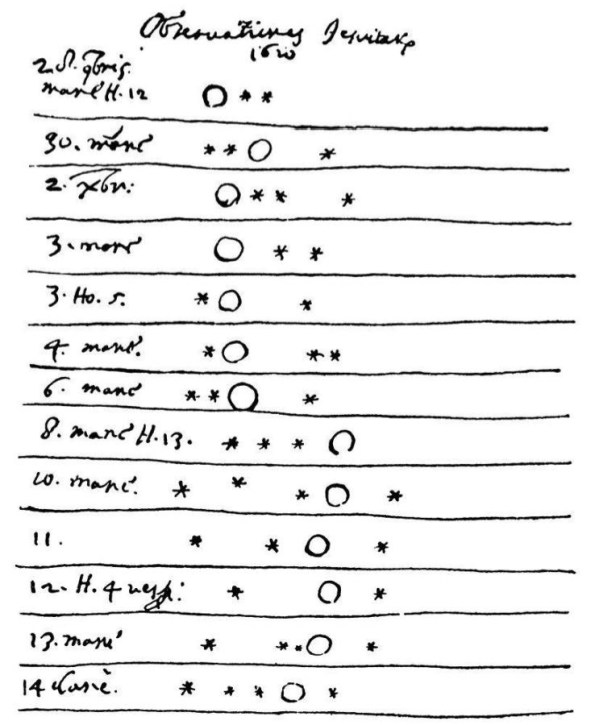 Observationes Jesuitarum
1610
2. S. 9bris.
mane H. 12
30. mane
2. Xbr:
3. mane
3. Ho. 5.
4. mane.
6. mane
8. mane H. 13.
10. mane.
11.
12. H. 4 vesp:
13. mane
14